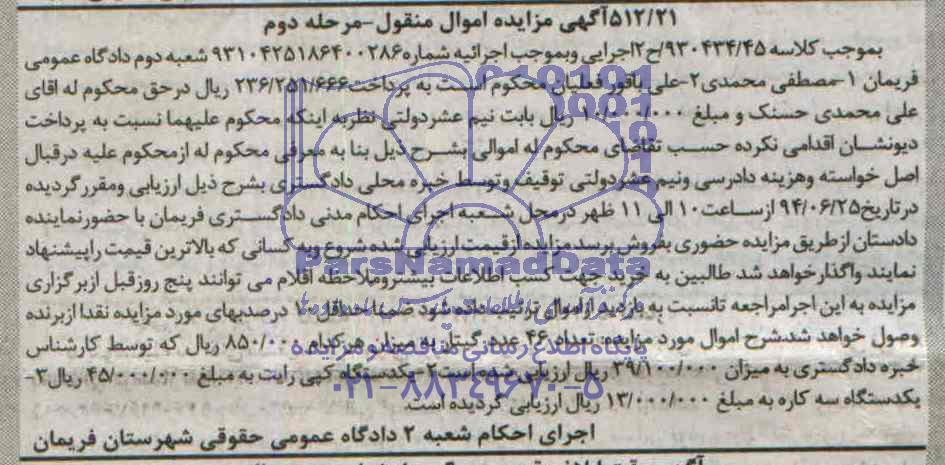 ۵۱۲/۲۱آگهی مزایده اموال منقول-مرحله دوم
بموجب کلاسه ۹۳۰۴۳۴/۴۵/ح۲اجرایی وبموجب اجرائیه شماره۹۳۱۰۴۲۵۱۸۶۴۰۰۲۸۶ شعبه دوم دادگاه عمومی
فریمان ۱-مصطفی محمدی۲-علی باقور فعلیان محکوم است به پرداخت۲۳۶/۲۵۱/۶۶۶ ریال درحق محکوم له اقای
علی محمدی حسنک و مبلغ ۱۰/۰۰۰/۰۰۰ ریال بابت نیم عشردولتی نظربه اینکه محکوم علیهما نسبت به پرداخت
دیونشان اقدامی نکرده حسب تقاضای محکوم له اموالی بشرح ذیل بنا به معرفی محکوم له ازمحکوم علیه درقبال
اصل خواسته وهزینه دادرسی ونیم عشردولتی توقیف وتوسط خبره محلی دادگستری بشرح ذیل ارزیابی ومقررگردیده
درتاریخ۹۴/۰۶/۲۵ ازساعت۱۰ الی ۱۱ ظهر درمحل شعبه اجرای احکام مدنی دادگستری فریمان با حضورنماینده
دادستان ازطریق مزایده حضوری بفروش برسد مزایده ازقیمت ارزیابی شده شروع وبه کسانی که بالاترین قیمت راپیشنهاد
نمایند واگذارخواهد شد طالبین به خرید جهت کسب اطلاعات بیشتروملاحظه اقلام می توانند پنج روزقبل ازبرگزاری
مزایده به این اجرامراجعه تانسبت به بازدید ازاموال ترتیب داده شود ضمنا حداقل۱۰ درصدبهای مورد مزایده نقدا ازبرنده
وصول خواهد شد.شرح اموال مورد مزایده: تعداد ۴۶ عدد گیتار به میزان هرکدام ۸۵۰/۰۰۰ ریال که توسط کارشناس
خبره دادگستری به میزان ۳۹/۱۰۰/۰۰۰ ریال ارزیابی شده است۲-یکدستگاه کپی رایت به مبلغ ۴۵/۰۰۰/۰۰۰ ریال۳-
یکدستگاه سه کاره به مبلغ ۱۳/۰۰۰/۰۰۰ ریال ارزیابی گردیده است.
اجرای احکام شعبه ۲ دادگاه عمومی حقوقی شهرستان فریمان
ParsNamadData
پایگاه اطلاع رسانی مناقصه و مزایده
۰۲۱-۸۸۳۴۹۶۷۰-۵